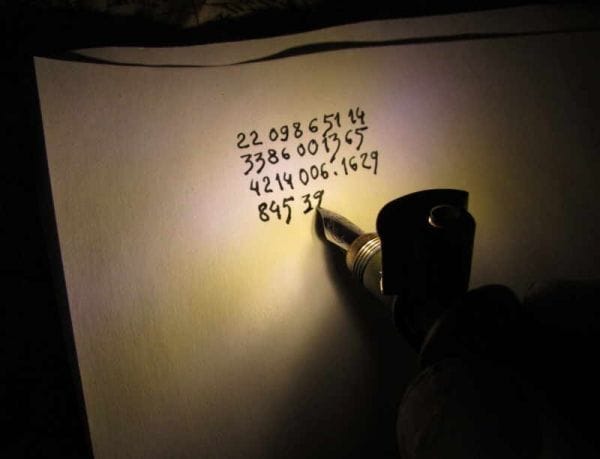 22 098651 14
3386 001365
4214 006.1629
845 39